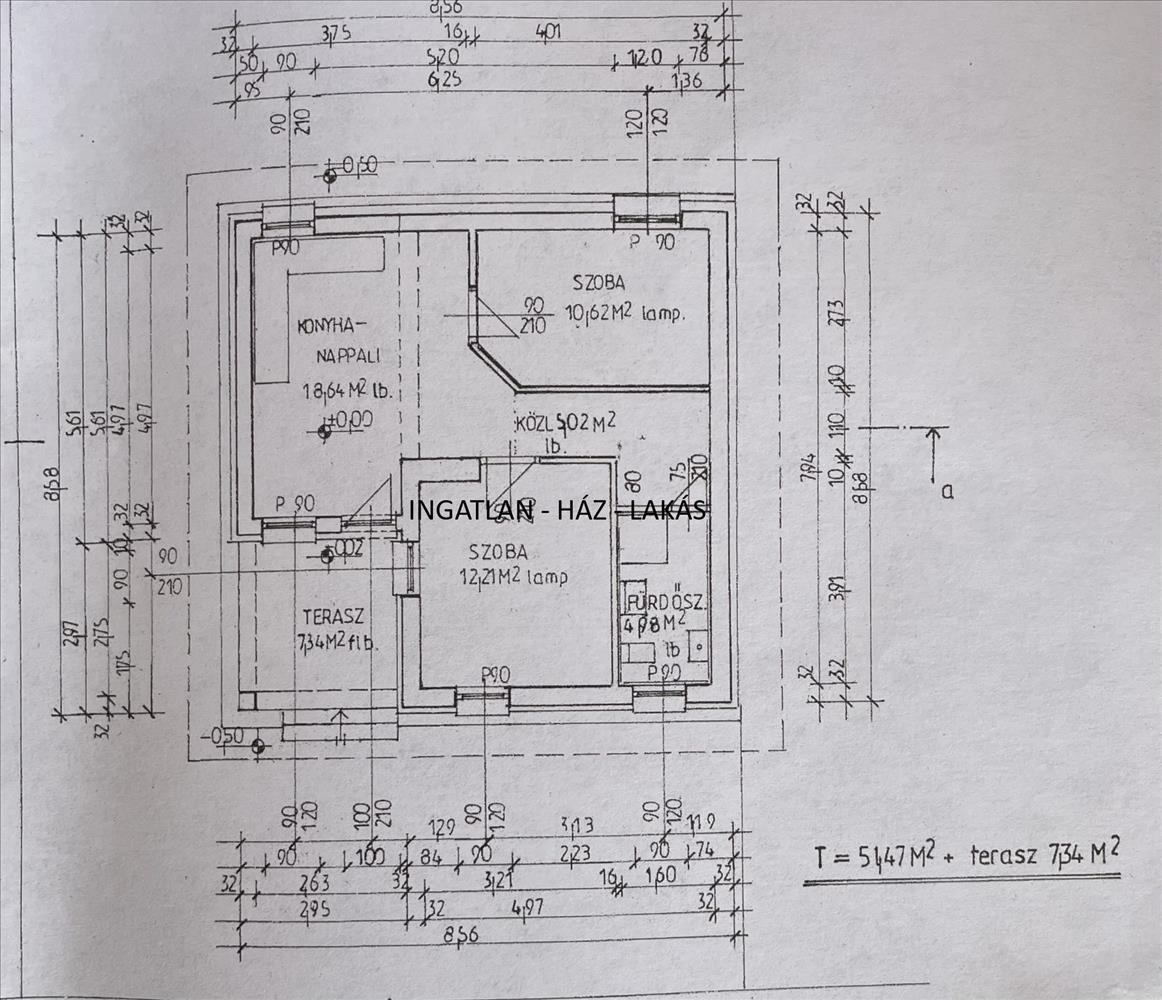 8,56
32 3,75 16 4,01 32
50 90 5,20 1,20 78
95 6,25 1,36
90 210
120 120
-0,50
P90
P 90
SZOBA
10,62 M² lamp.
90
210
KONYHA-
NAPPALI
18,64 M² lb.
±0,00
KÖZL 5,02 M²
lb.
80
75
210
P 90
INGATLAN - HÁZ - LAKÁS
-0,02
SZOBA
12,21 M² lamp
90
210
TERASZ
7,34 M² flb.
FÜRDŐSZ.
4,98 M²
lb
P90
P90
-0,50
32 32
5,61 5,61 4,97 4,97
8,68
32 32
10
90
2,97 2,75
1,75
32
32 32
2,73
10
1,10
7,94 10 8,68
a
3,91
32 32
90 120
100 210
90 120
90 120
1,29 3,13 1,19
90 100 84 90 2,23 90 74
32 2,63 32 3,21 16 1,60 32
2,95 32 4,97 32
8,56
T = 51,47 M² + terasz 7,34 M²